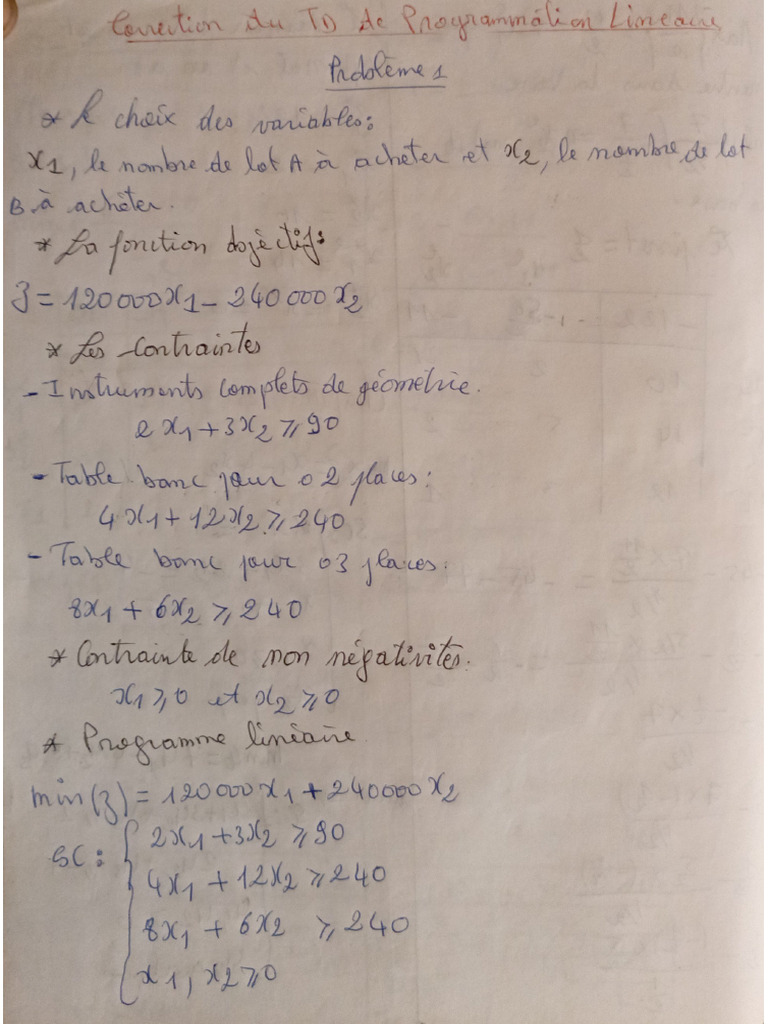 Correction du TD de Programmation Lineaire
Problème 1
* le choix des variables:
x1, le nombre de lot A à acheter et x2, le nombre de lot
B à acheter.
* La fonction objéctif:
Z = 120 000x1 - 240 000x2
* Les Contraintes
- Instruments complets de géométrie.
2x1 + 3x2 ⩾ 90
- Table banc pour 02 places:
4x1 + 12x2 ⩾ 240
- Table banc pour 03 places:
8x1 + 6x2 ⩾ 240
* Contrainte de non négativités.
x1 ⩾ 0 et x2 ⩾ 0
* Programme linéaire
min(z) = 120 000x1 + 240 000x2
SC: { 2x1 + 3x2 ⩾ 90
4x1 + 12x2 ⩾ 240
8x1 + 6x2 ⩾ 240
x1, x2 ⩾ 0